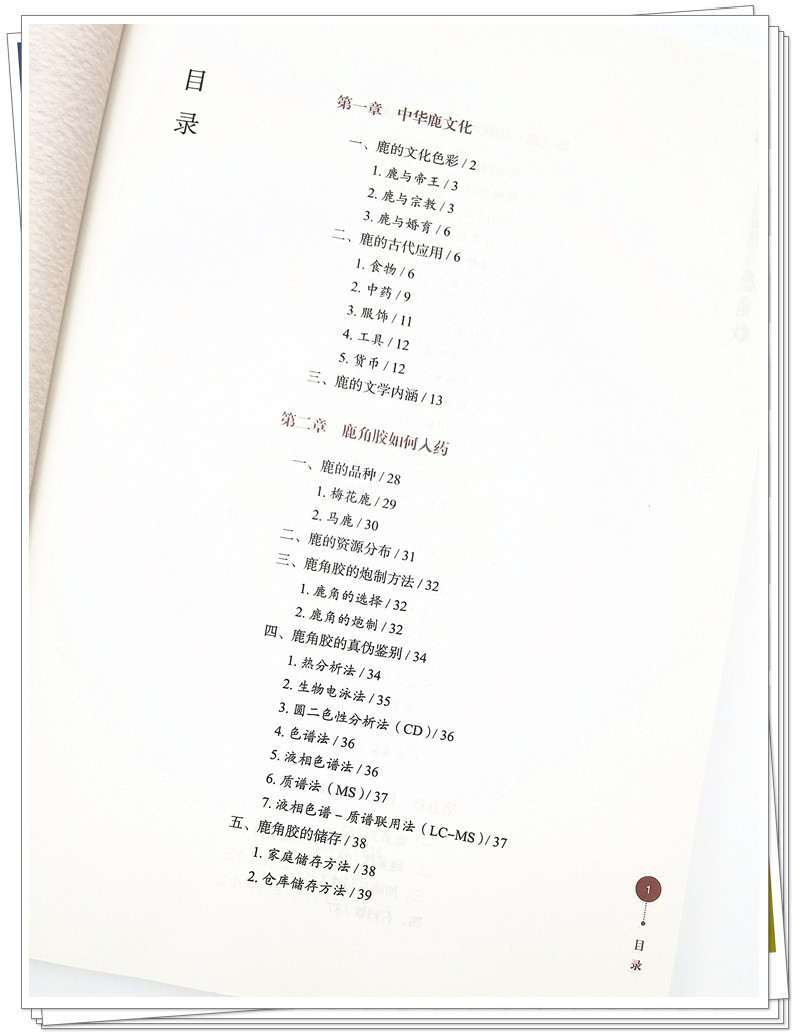 目
录
第一章 中华鹿文化
一、鹿的文化色彩 / 2
1. 鹿与帝王 / 3
2. 鹿与宗教 / 3
3. 鹿与婚育 / 6
二、鹿的古代应用 / 6
1. 食物 / 6
2. 中药 / 9
3. 服饰 / 11
4. 工具 / 12
5. 货币 / 12
三、鹿的文学内涵 / 13
第二章 鹿角胶如何入药
一、鹿的品种 / 28
1. 梅花鹿 / 29
2. 马鹿 / 30
二、鹿的资源分布 / 31
三、鹿角胶的炮制方法 / 32
1. 鹿角的选择 / 32
2. 鹿角的炮制 / 32
四、鹿角胶的真伪鉴别 / 34
1. 热分析法 / 34
2. 生物电泳法 / 35
3. 圆二色性分析法（CD）/ 36
4. 色谱法 / 36
5. 液相色谱法 / 36
6. 质谱法（MS）/ 37
7. 液相色谱－质谱联用法（LC-MS）/ 37
五、鹿角胶的储存 / 38
1. 家庭储存方法 / 38
2. 仓库储存方法 / 39
1
目
录